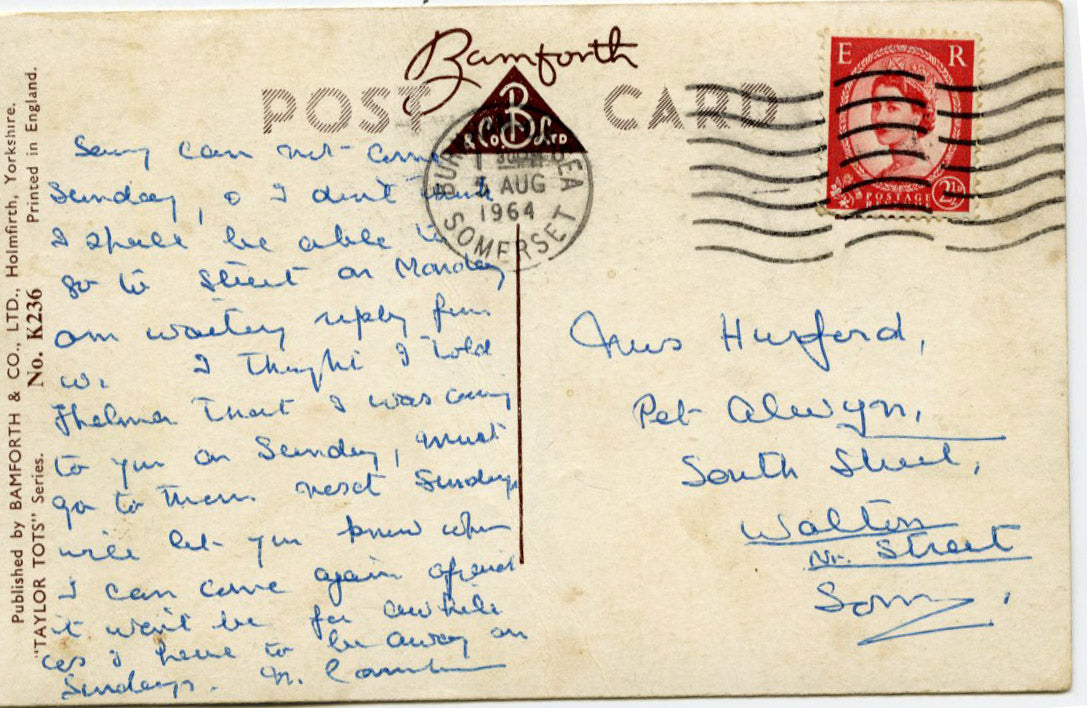 Bamforth
POST CARD
& Co B LTD
BUR SEA
AUG
1964
SOMERSET
E R
POSTAGE 2½D
Published by BAMFORTH & CO., LTD., Holmfirth, Yorkshire.
"TAYLOR TOTS" Series. No. K236 Printed in England.
can not come
Sunday, & I don't think
I shall be able to
go to Street on Monday
am waiting reply from
I thought I told
Thelma that I was coming
to you on Sunday, must
go to them next Sunday
will let you know when
I can come again afraid
it won't be for awhile
as I have to be away on
Sundays. M.
Hurford,
Pet Alwyn,
South Street,
Walton
Nr. Street
Som